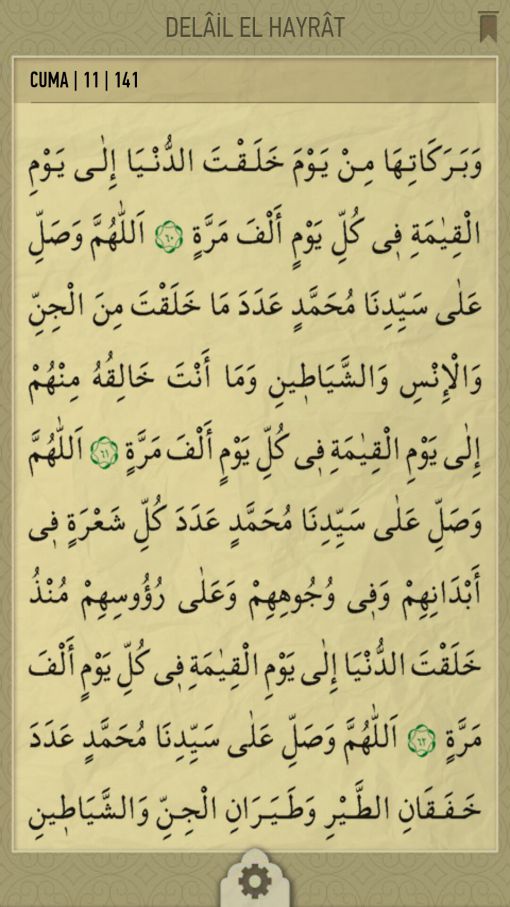 DELÂİL EL HAYRÂT
CUMA | 11 | 141
وَبَرَكَاتِهَا مِنْ يَوْمَ خَلَقْتَ الدُّنْيَا إِلٰى يَوْمِ
الْقِيٰمَةِ فِى كُلِّ يَوْمٍ أَلْفَ مَرَّةٍ ٦٠ اَللّٰهُمَّ وَصَلِّ
عَلٰى سَيِّدِنَا مُحَمَّدٍ عَدَدَ مَا خَلَقْتَ مِنَ الْجِنِّ
وَالْإِنْسِ وَالشَّيَاطِينِ وَمَا أَنْتَ خَالِقُهُ مِنْهُمْ
إِلٰى يَوْمِ الْقِيٰمَةِ فِى كُلِّ يَوْمٍ أَلْفَ مَرَّةٍ ٦١ اَللّٰهُمَّ
وَصَلِّ عَلٰى سَيِّدِنَا مُحَمَّدٍ عَدَدَ كُلِّ شَعْرَةٍ فِى
أَبْدَانِهِمْ وَفِى وُجُوهِهِمْ وَعَلٰى رُؤُوسِهِمْ مُنْذُ
خَلَقْتَ الدُّنْيَا إِلٰى يَوْمِ الْقِيٰمَةِ فِى كُلِّ يَوْمٍ أَلْفَ
مَرَّةٍ ٦٢ اَللّٰهُمَّ وَصَلِّ عَلٰى سَيِّدِنَا مُحَمَّدٍ عَدَدَ
خَفَقَانِ الطَّيْرِ وَطَيَرَانِ الْجِنِّ وَالشَّيَاطِينِ